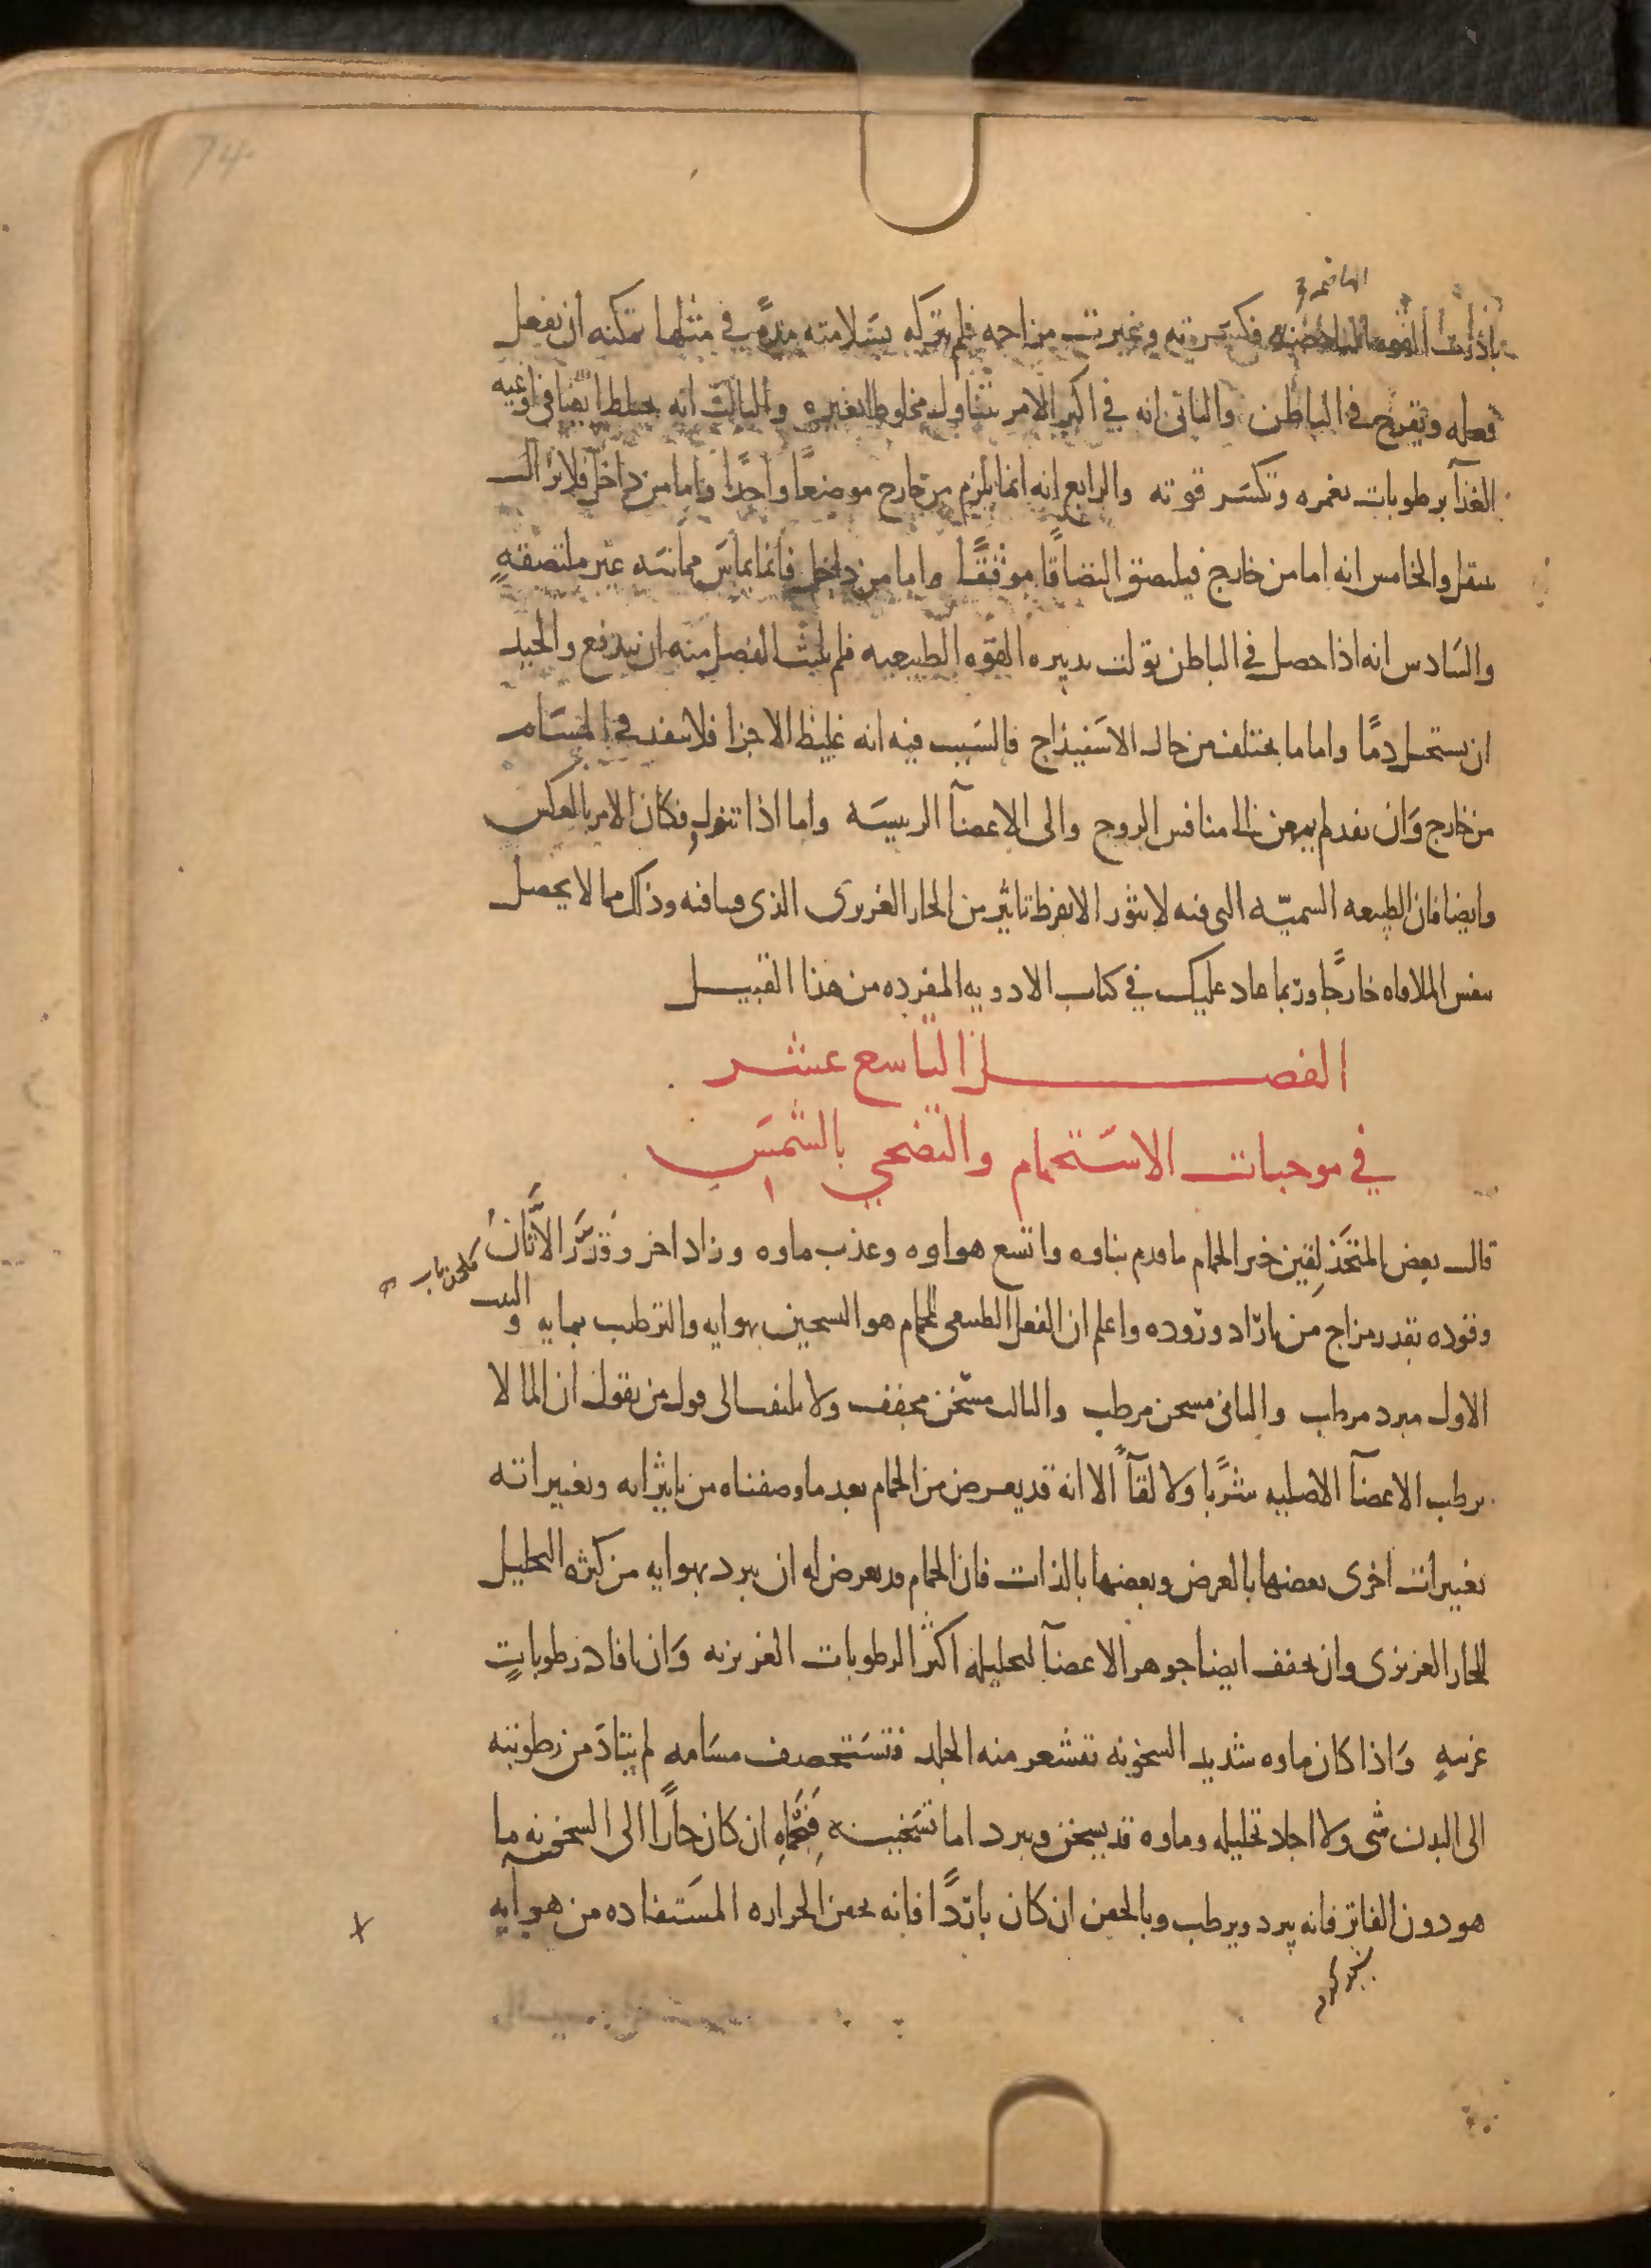 74
الهاضمة
بادرت القوة الهاضمة فكسرته وغيرت مزاجه فلم يتركه بسلامته مدة في مثلها يمكنه ان يفعل
فعله ويقرح في الباطن والثاني انه في اكثر الامر يتناول مخلوطا بغيره والثالث انه يختلط ايضا في اوعيه
الغذآ برطوبات تغمره وتكسر قوته والرابع انه انما يلزم من خارج موضعا واحدا واما من داخل فلا يزال
ينتقل والخامس انه اما من خارج فيلتصق التصاقا موثقا واما من داخل فانما يماس مماسه غير ملتصقه
والسادس انه اذا حصل في الباطن تولت تدبيره القوه الطبيعيه فلم يلبث الفصل منه ان يندفع والجيد
ان يستحيل دما واما ما يختلف من حال الاسفيذاج فالسبب فيه انه غليظ الاجزا فلا ينفذ في المسام
من خارج وان نفد لم يمعن الى منافس الروح والى الاعضآ الرييسه واما اذا تنوول فكان الامر بالعكس
وايضا فان الطبيعه السميّه التي فيه لا يثور الا بفرط تاثير من الحار الغريزى الذى فينا فيه وذلك مما لا يحصل
بنفس الملاقاه خارجا وربما عاد عليك في كتاب الادويه المفرده من هذا القبيل
الفصل التاسع عشر
في موجبات الاستحمام والتضحي بالشمس
قال بعض المتحذلقين خير الحمام ما قدم بناوه واتسع هواوه وعذب ماوه وزاد اخر وقدّر الاتان
وقوده بقدر مزاج من اراد وروده واعلم ان الفعل الطبيعى للحمام هو التسخين بهوايه والترطيب بمايه والبيت
الاول مبرد مرطب والثانى مسخن مرطب والثالث مسخن مجفف ولا يلتفت الى قول من يقول ان الما لا
يرطب الاعضآ الاصليه شربا ولا لقآ الا انه قد يعرض من الحمام بعد ما وصفناه من تاثيراته وتغييراته
تغييرات اخرى بعضها بالعرض وبعضها بالذات فان الحمام قد يعرض له ان يبرد بهوايه من كثره التحليل
للحار الغريزى وان يجفف ايضا جوهر الاعضآ لتحليله اكثر الرطوبات الغريزيه وان افاد رطوبات
غريبه واذا كان ماوه شديد السخونه تقشعر منه الجلد فتستحصف مسامه لم يتاد من رطوبته
الى البدن شى ولا اجاد تحليله وماوه قد يسخن ويبرد اما تسخينه فبحماه ان كان حارا الى السخونه ما
هو دون الفاتر فانه يبرد ويرطب وبالحقن ان كان باردا فانه يحقن الحراره المستفاده من هوايه